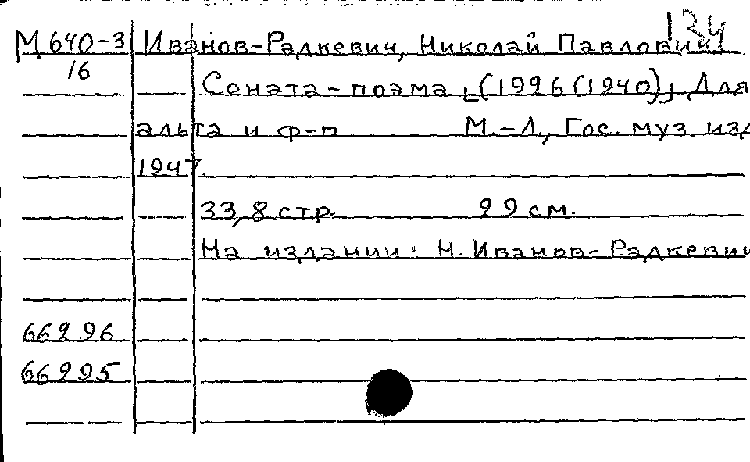 134
М 640-3 Иванов-Радкевич, Николай Павлович
16
Соната-поэма [(1926(1940)] Для
альта и ф-п М.-Л., Гос. муз. изд
1947.
33,8 стр. 29 см.
На издании: Н. Иванов-Радкевич
66296
66295